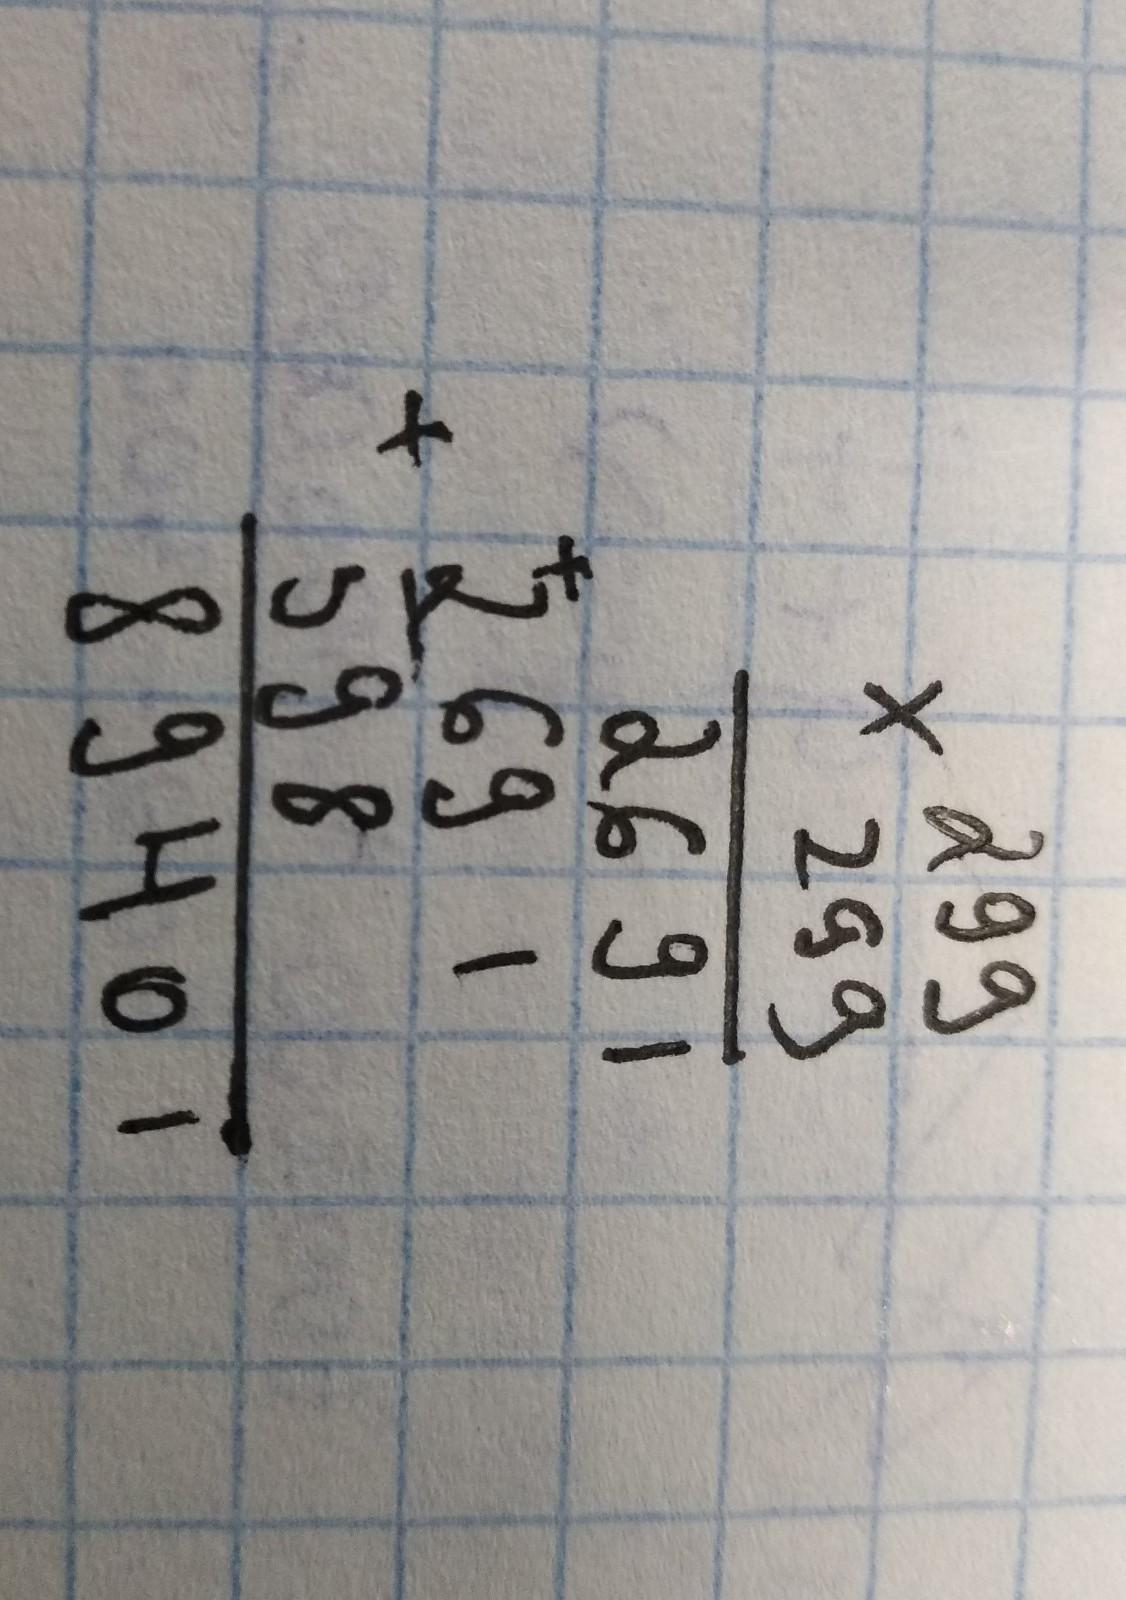 299
× 299
2691
+ 2691
+ 598
89401